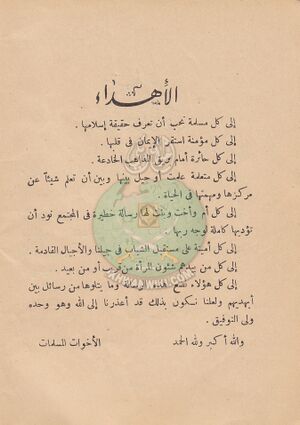 الأهداء
إلى كل مسلمة تحب أن تعرف حقيقة إسلامها .
إلى كل مؤمنة استقر الإيمان في قلبها .
إلى كل حائرة أمام بريق المذاهب الخادعة .
إلى كل متعلمة علمت أو حيل بينها وبين أن تعلم شيئاً عن
مركزها ومهمتها في الحياة .
إلى كل أم وأخت وبنت لها رسالة خطيرة في المجتمع تود أن
تؤديها كاملة لوجه ربها
إلى كل أمينة على مستقبل الشباب في جيلنا والأجيال القادمة .
إلى كل من يهمه شئون المرأة من قريب أو من بعيد .
إلى كل هؤلاء هذه الرسالة وما يتلوها من رسائل بين
أيديهم ولعلنا نكون بذلك قد أعذرنا إلى الله وهو وحده
ولى التوفيق .
والله أكبر ولله الحمد
الأخوات المسلمات